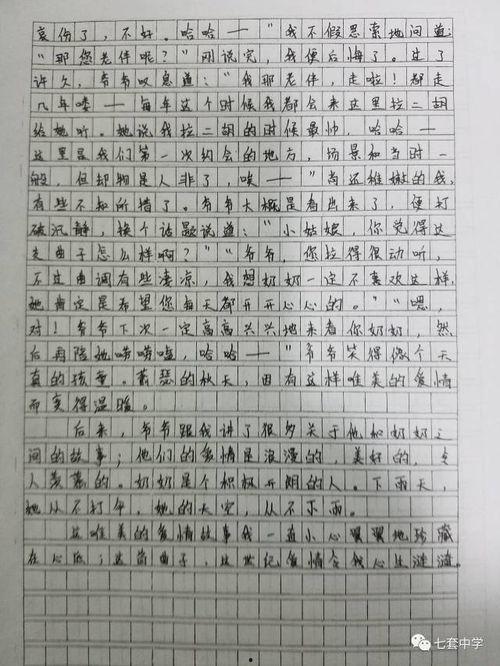 哀伤了，不好。哈哈——”我不假思索地问道：
“那您老伴呢？”刚说完，我便后悔了。过了
许久，爷爷叹息道：“我那老伴，走啦！都走
几年喽——每年这个时候我都会来这里拉二胡
给她听。她说我拉二胡的时候最帅，哈哈——
这里是我们第一次约会的地方，场景和当时一
般，但却物是人非了，唉——”尚还稚嫩的我，
有些不知所措了。爷爷大概是看出来了，便打
破沉静，换个话题说道：“小姑娘，你觉得这
支曲子怎么样啊？”“爷爷，你拉得很动听，
不过曲调有些凄凉，我想奶奶一定不喜欢这样，
她肯定是希望您每天都开开心心的。”“嗯，
对！爷爷下次一定高高兴兴地来看你奶奶，然
后再陪她唠唠嗑，哈哈——”爷爷笑得像个天
真的孩童。萧瑟的秋天，因有这样唯美的爱情
而变得温暖。
后来，爷爷跟我讲了很多关于他和奶奶之
间的故事；他们的爱情是浪漫的，美好的，令
人羡慕的。奶奶是个积极开朗的人。下雨天，
她从不打伞，她的天空，从不下雨。
这唯美的爱情故事我一直小心翼翼地珍藏
在心底；这首曲子，这世纪爱情令我心生涟漪。
七套中学